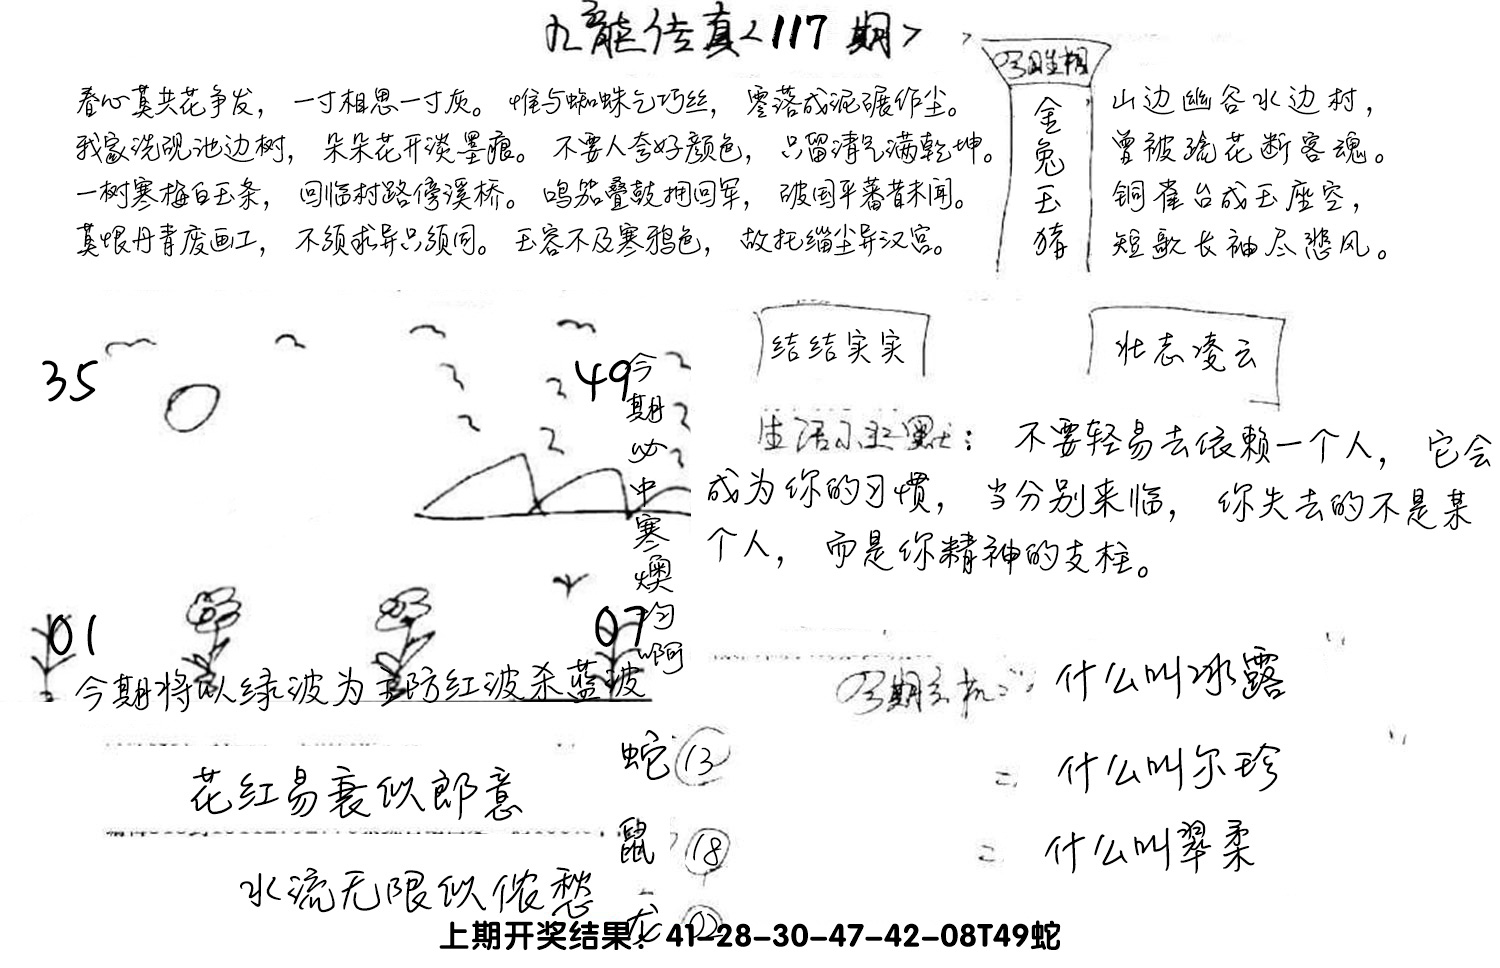 九龙传真<117期>
春心莫共花争发，一寸相思一寸灰。惟与蜘蛛乞巧丝，零落成泥碾作尘。
我家洗砚池边树，朵朵花开淡墨痕。不要人夸好颜色，只留清气满乾坤。
一树寒梅白玉条，回临村路傍溪桥。鸣笳叠鼓拥回军，破国平蕃昔未闻。
莫恨丹青废画工，不须求异只须同。玉容不及寒鸦色，故托缁尘异汉宫。
金兔玉猪
山边幽谷水边村，
曾被疏花断客魂。
铜雀台成玉座空，
短歌长袖尽悲风。
35
49
今期必中寒燠均啊
01
07
今期将以绿波为主防红波杀蓝波
结结实实
壮志凌云
生活小幽默：不要轻易去依赖一个人，它会
成为你的习惯，当分别来临，你失去的不是某
个人，而是你精神的支柱。
今期玄机：什么叫冰露
什么叫尔珍
什么叫翠柔
花红易衰似郎意
水流无限似侬愁
蛇 13
鼠 18
龙 02
上期开奖结果：41-28-30-47-42-08T49蛇